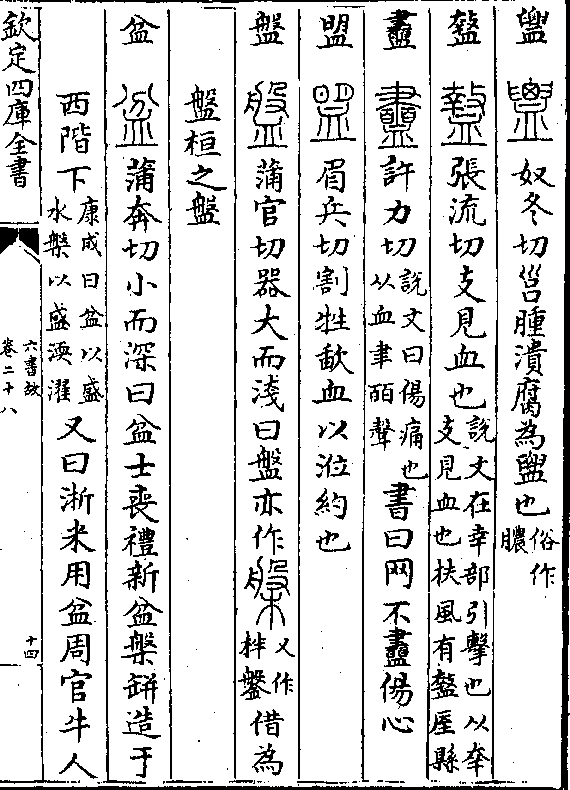 盥 奴冬切䒤腫潰腐為盥也俗作膿
盩 張流切支見血也說文在幸部引擊也从幸支見血也扶風有盩厔縣
衋 許力切說文曰傷痛也从血聿皕聲書曰网不衋傷心
盟 眉兵切割牲歃血以涖約也
盤 蒲官切器大而淺曰盤亦作槃又作柈鎜借為
盤桓之盤
盆 蒲奔切小而深曰盆士喪禮新盆槃缾造于
西階下康成曰盆以盛水槃以盛渜濯又曰淅米用盆周官牛人
欽定四庫全書
六書故
卷二十八
十四